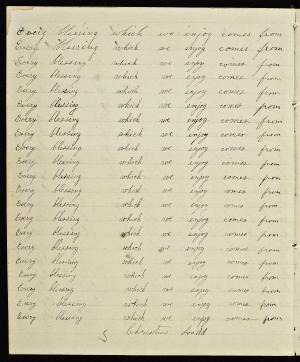 Every blessing which we enjoy comes from
Every blessing which we enjoy comes from
Every blessing which we enjoy comes from
Every blessing which we enjoy comes from
Every blessing which we enjoy comes from
Every blessing which we enjoy comes from
Every blessing which we enjoy comes from
Every blessing which we enjoy comes from
Every blessing which we enjoy comes from
Every blessing which we enjoy comes from
Every blessing which we enjoy comes from
Every blessing which we enjoy comes from
Every blessing which we enjoy comes from
Every blessing which we enjoy comes from
Every blessing which we enjoy comes from
Every blessing which we enjoy comes from
Every blessing which we enjoy comes from
Every blessing which we enjoy comes from
Every blessing which we enjoy comes from
Every blessing which we enjoy comes from
Every blessing which we enjoy comes from